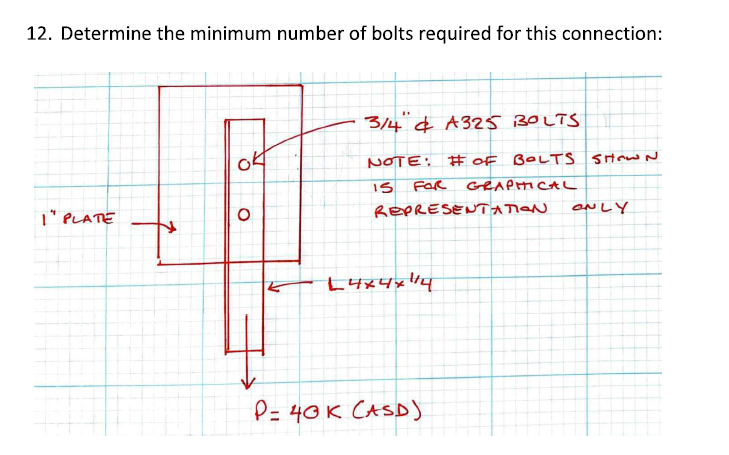 12. Determine the minimum number of bolts required for this connection:
3/4" ¢ A325 BOLTS
NOTE: # OF BOLTS SHOWN
IS FOR GRAPHICAL
REPRESENTATION ONLY
1" PLATE
L4x4x1/4
P= 40K (ASD)